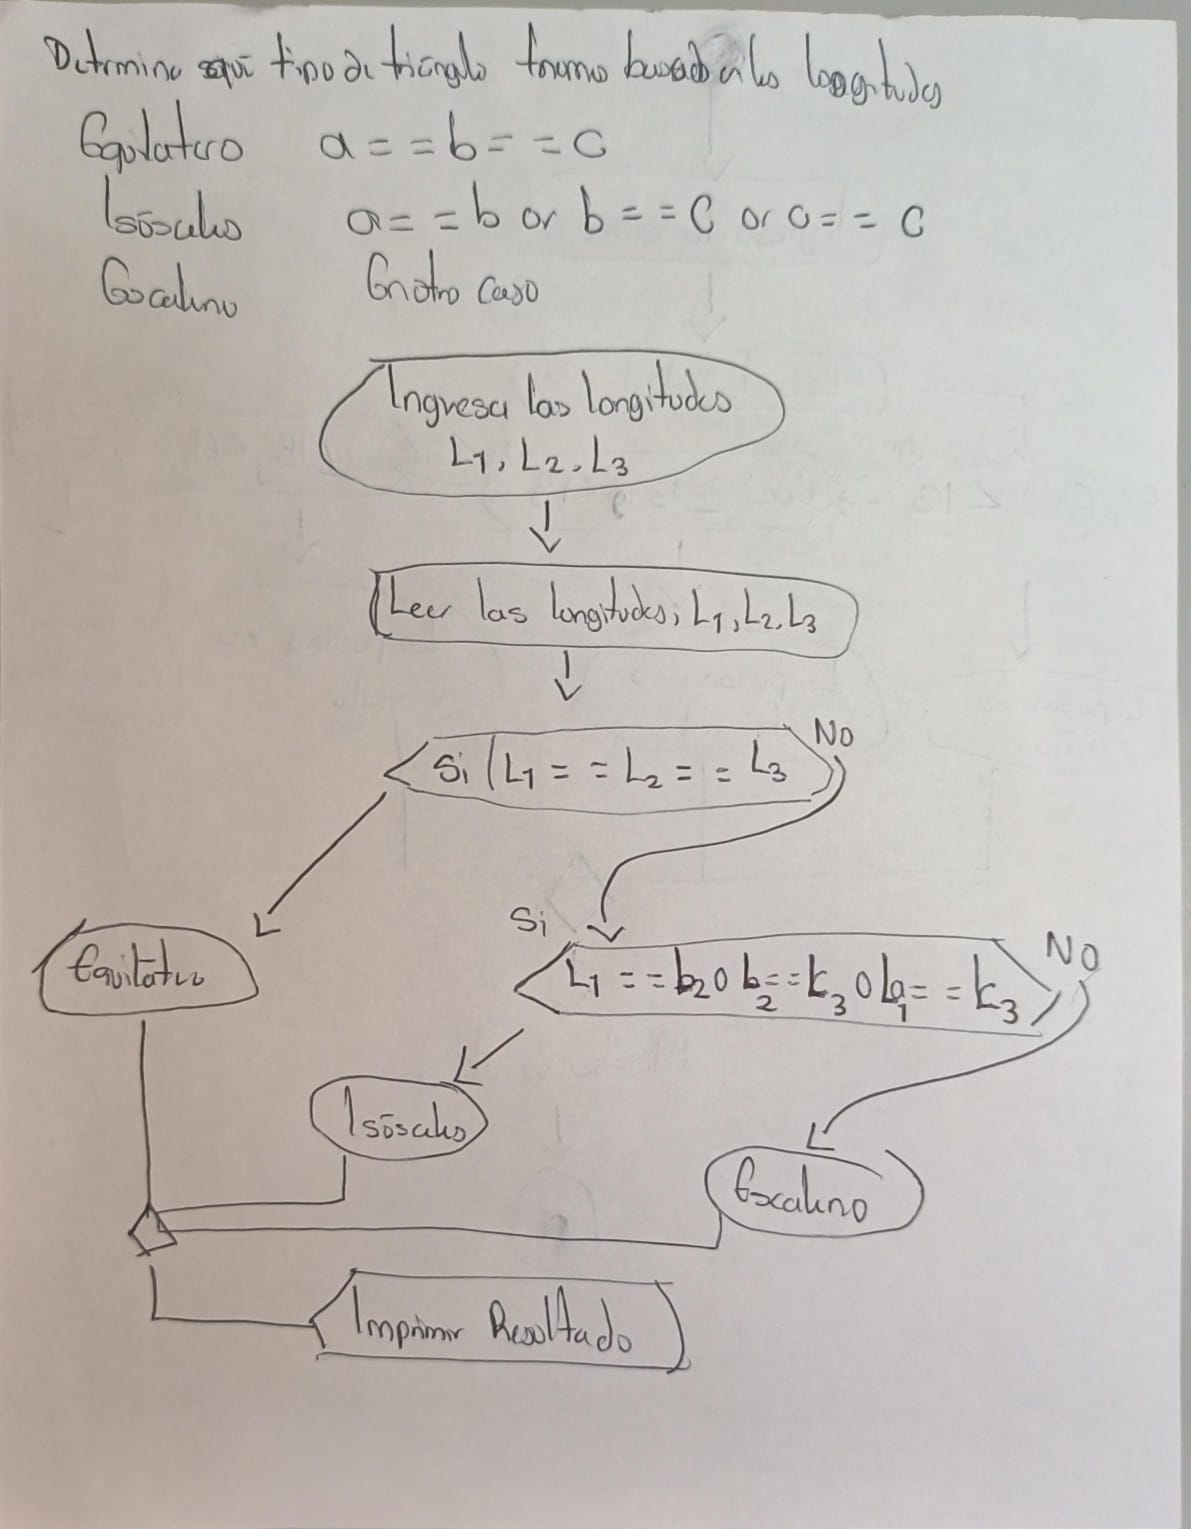 Determine qué tipo de triángulo tnemo basado en las longitudes
Equilatero a = = b = = c
Isósceles a = = b or b = = c or a = = c
Escaleno En otro caso
Ingresa las longitudes
L1, L2, L3
Leer las longitudes; L1, L2, L3
No
Si (L1 = = L2 = = L3
Si
No
L1 = = L2 o L2 = = L3 o L1 = = L3
Equilátero
Isósceles
Escaleno
Imprimir Resultado